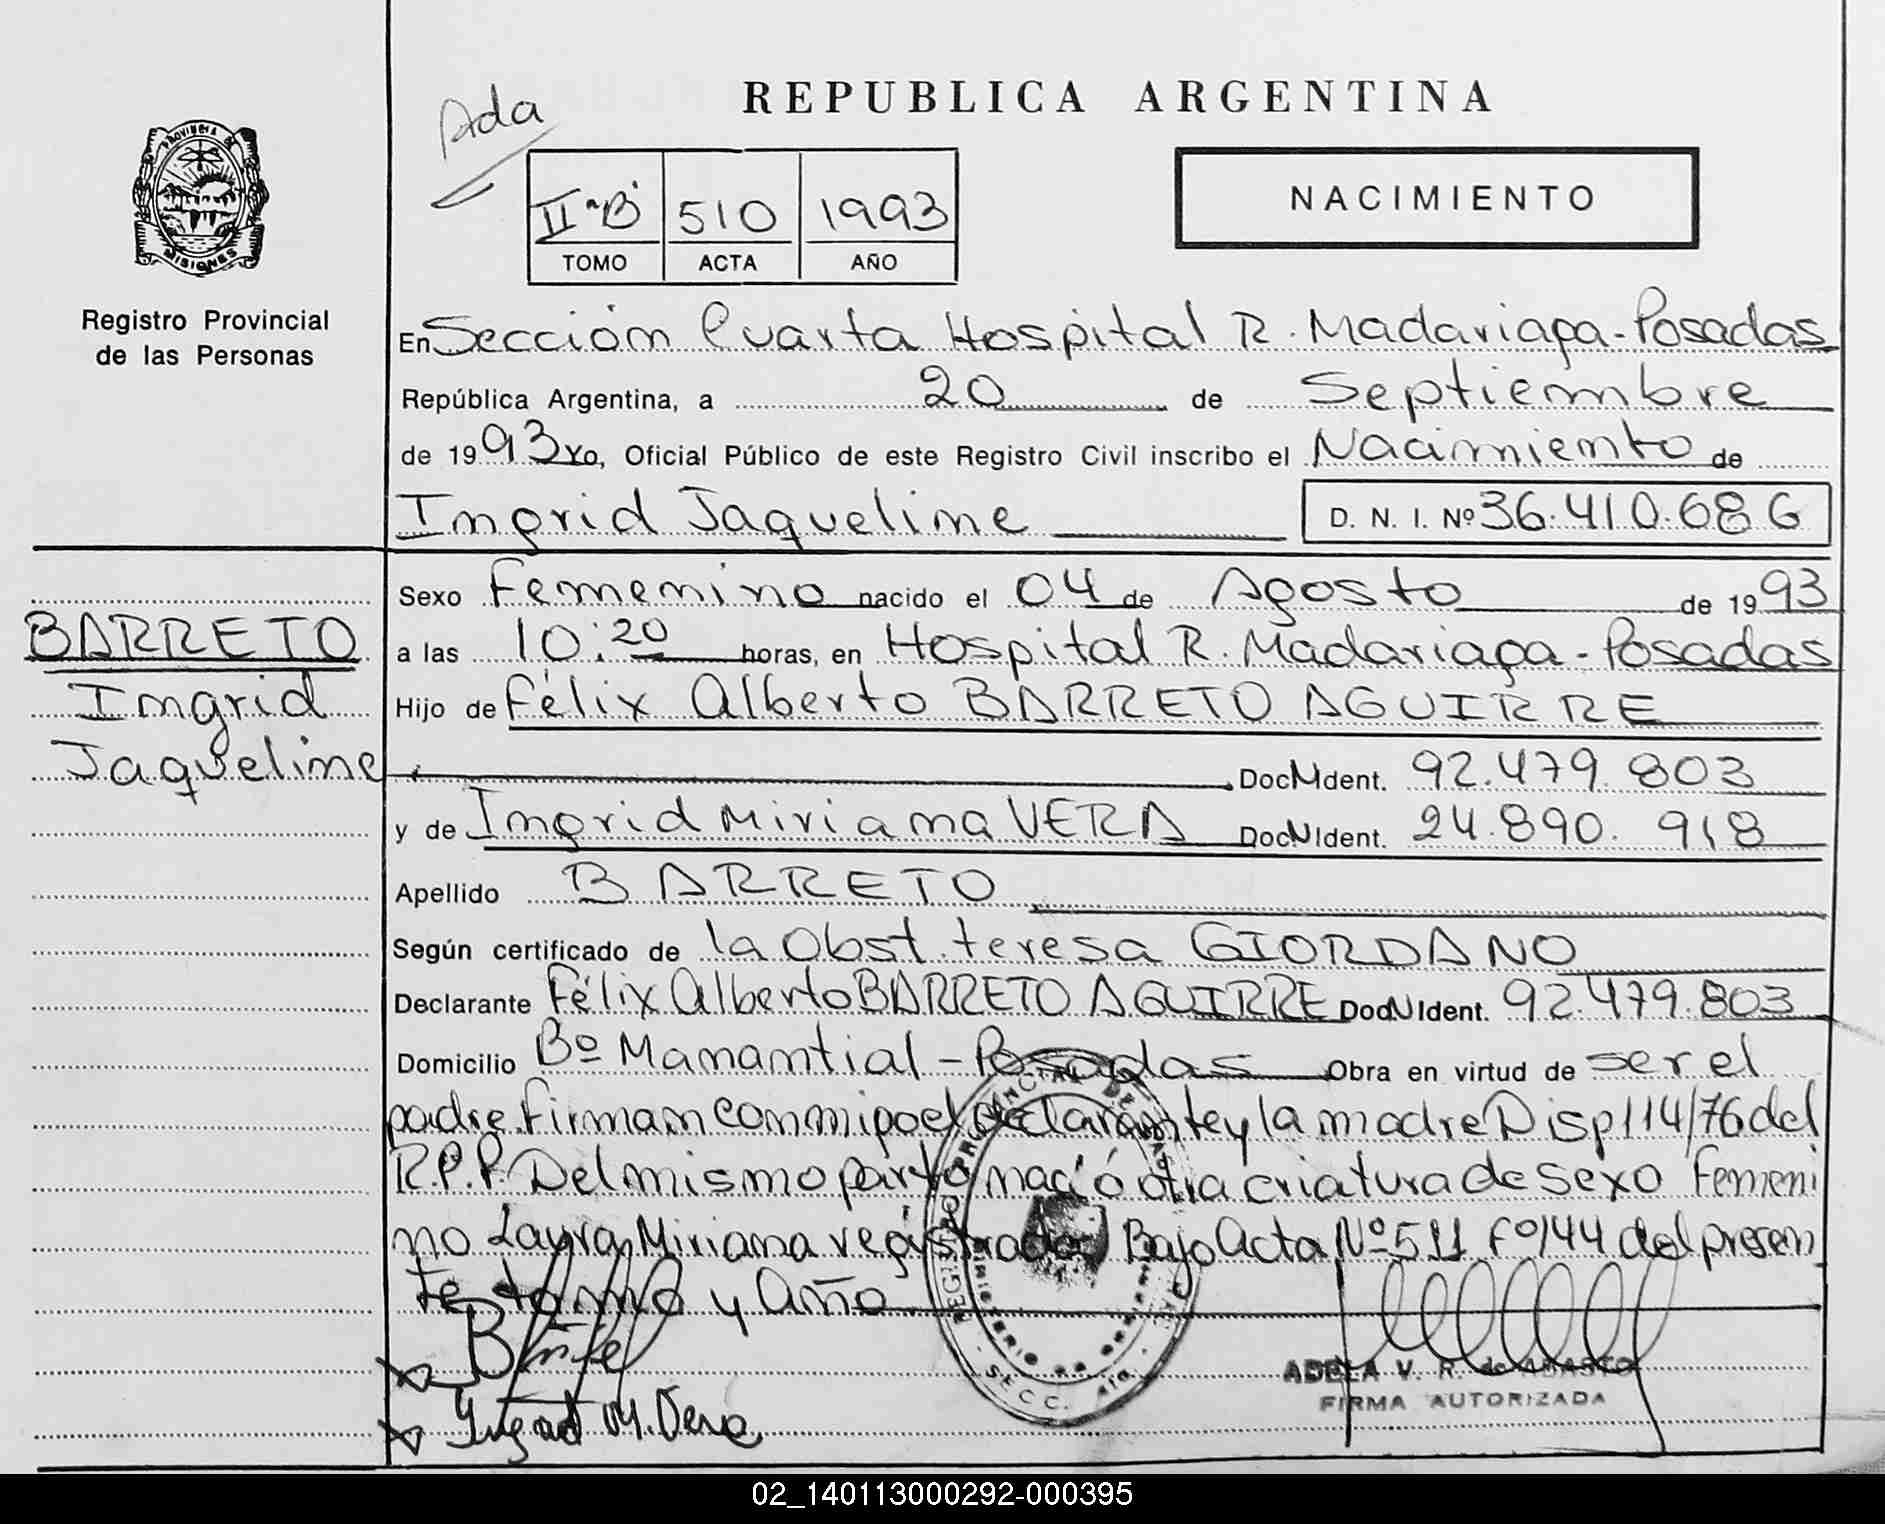 Ada
REPUBLICA ARGENTINA
PROVINCIA DE
MISIONES
Registro Provincial
de las Personas
IIº"B" 510 1993
TOMO ACTA AÑO
NACIMIENTO
En Sección Cuarta Hospital R. Madariaga-Posadas
República Argentina, a 20 de Septiembre
de 1993 Yo, Oficial Público de este Registro Civil inscribo el Nacimiento de
Ingrid Jaqueline D. N. I. Nº 36.410.686
BARRETO
Ingrid
Jaqueline
Sexo Femenino nacido el 04 de Agosto de 1993
a las 10:20 horas, en Hospital R. Madariaga-Posadas
Hijo de Félix Alberto BARRETO AGUIRRE
Doc. Ident. 92.479.803
y de Ingrid Miriama VERA Doc. Ident. 24.890.918
Apellido BARRETO
Según certificado de la Obst. teresa GIORDANO
Declarante Félix Alberto BARRETO AGUIRRE Doc. Ident. 92.479.803
Domicilio Bº Manantial - Posadas Obra en virtud de ser el
padre. firman conmigo el declarante y la madre Disp 114/76 del
R.P.P. Del mismo parto nació otra criatura de sexo Femeni
no Laura Miriama registrada Bajo Acta Nº 511 Fº 144 del presen
te tomo y año
SECC.
Ingrid M. Vera
ADELA V. R. de ABASTO
FIRMA AUTORIZADA
02_140113000292-000395